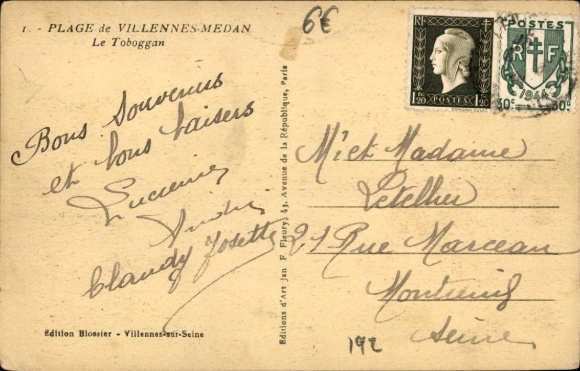 1. - PLAGE de VILLENNES-MEDAN
Le Toboggan
6€
Bons Souvenirs
et bons baisers
Lucienne
André
Claudy Josette
Edition Blossier - Villennes-sur-Seine
Editions d'Art Jan F. Fleury, 43, Avenue de la République, Paris
RF
1f20 POSTES 1f20
POSTES
RF
1944
30c 30c
M et Madame
Letellier
21 Rue Marceau
Montreuil
Seine
192